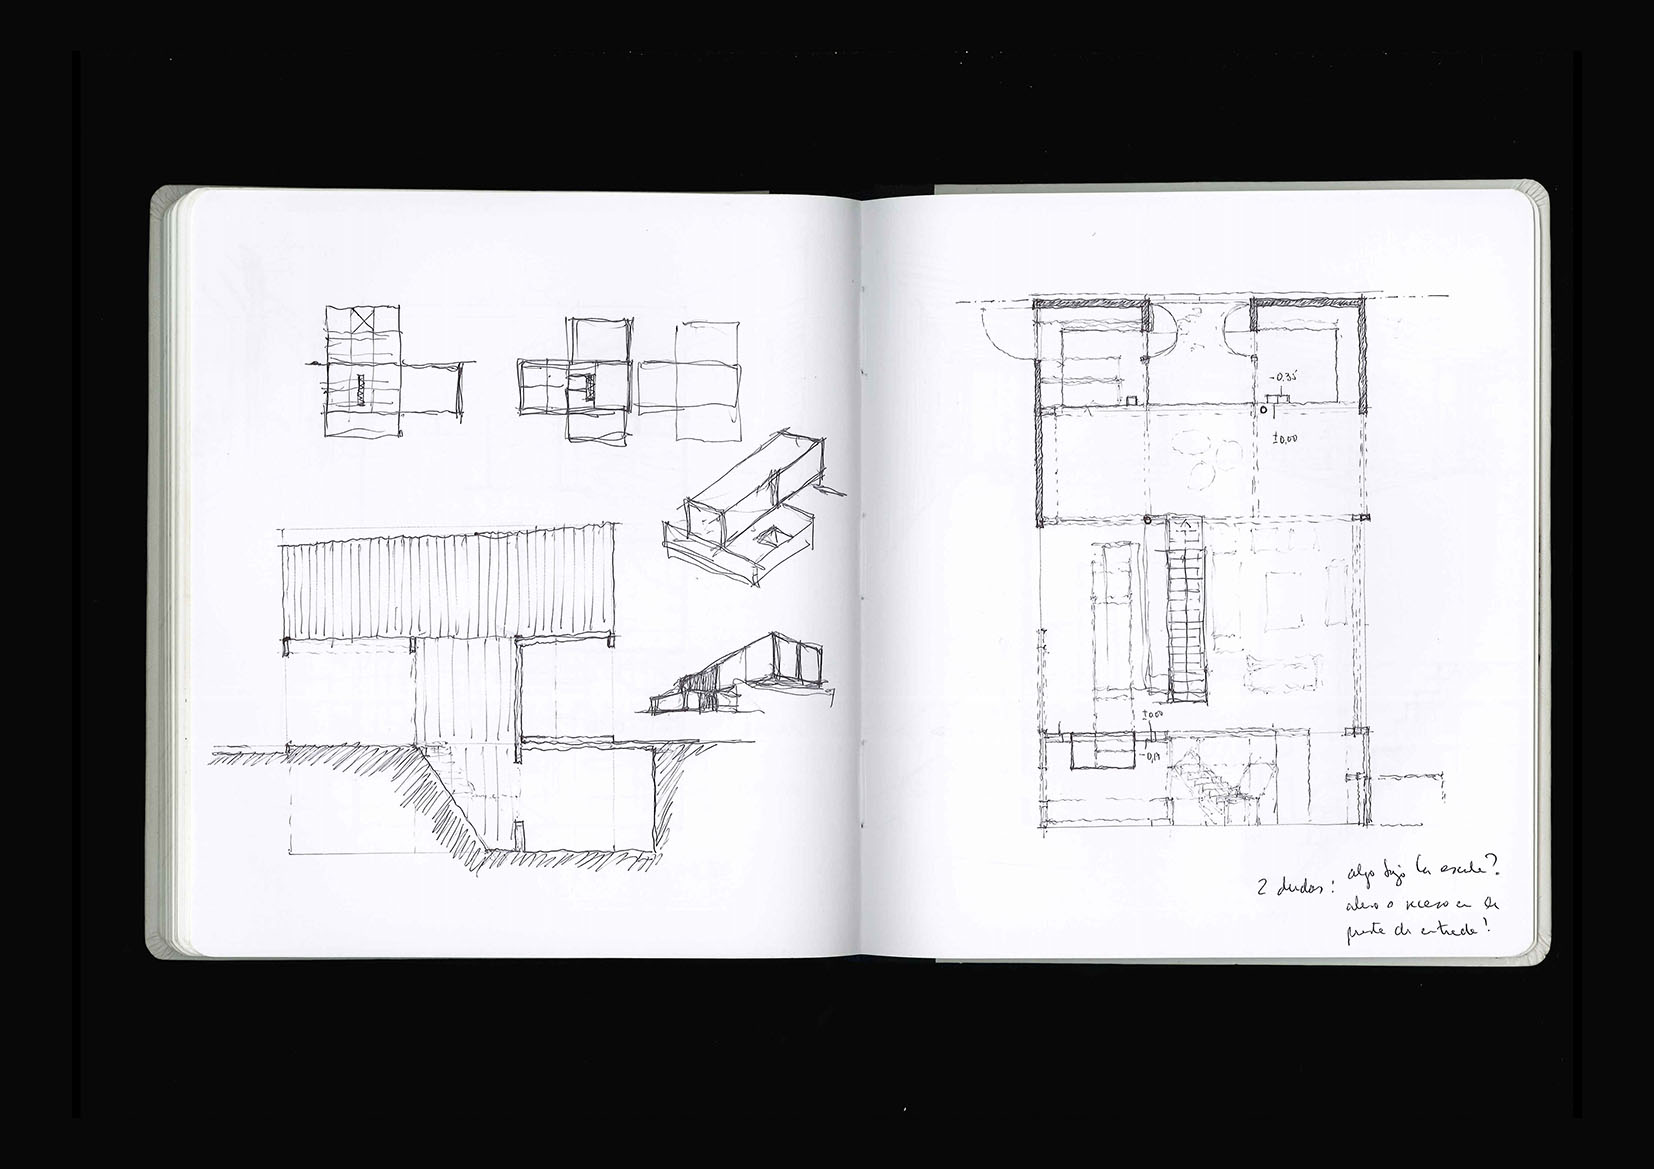 -0.35
±0.00
±0.00
-0,19
2 dudas: algo bajo la escale?
alero o receso en la
puerta de entrada?